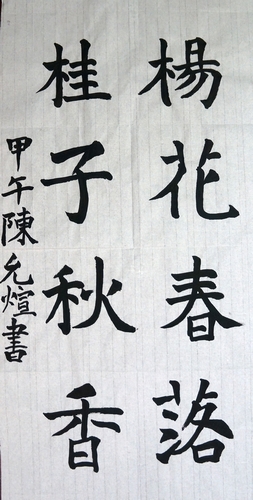 楊花春落
桂子秋香
甲午陳允煊書